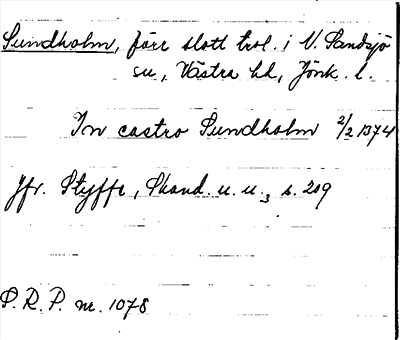 Sundholm, förr slott trol. i N. Sandsjö
sn, Västra hd, Jönk. l.
In castro Sundholm 2/2 1374
Jfr. Styffe, Skand. u. u.3 s. 209
P. R. P. nr. 1078